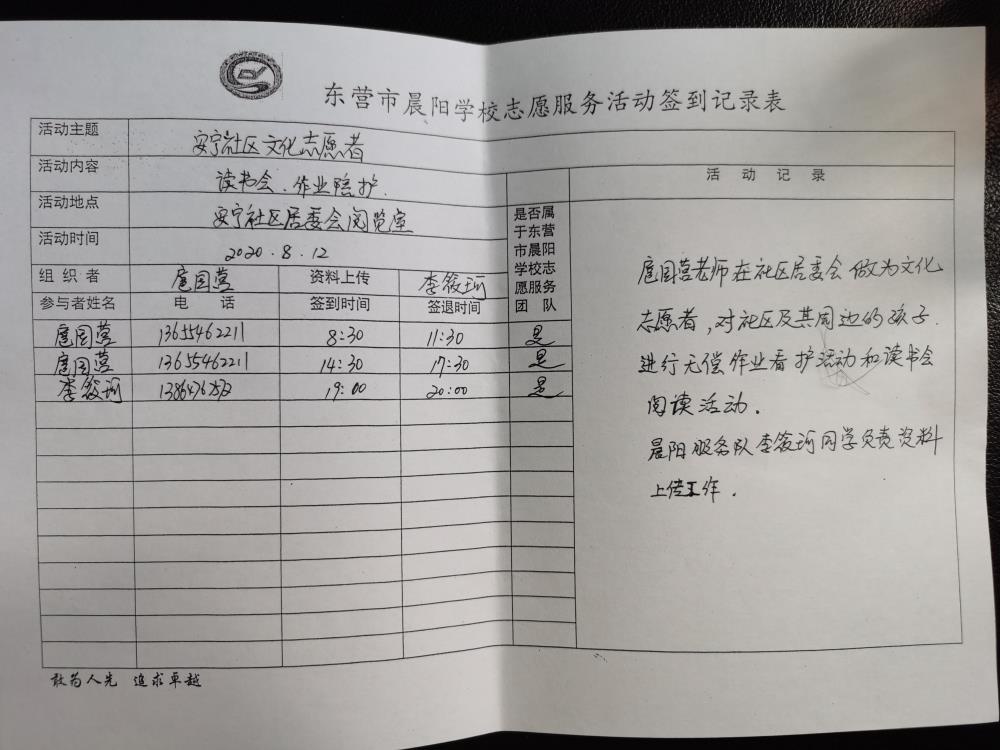 东营市晨阳学校志愿服务活动签到记录表
活动主题 安宁社区文化志愿者
活动内容 读书会、作业陪护
活动地点 安宁社区居委会阅览室
活动时间 2020.8.12
组织者 扈园营 资料上传 李筱珂
参与者姓名 电话 签到时间 签退时间 是否属于东营市晨阳学校志愿服务团队
扈园营 13655462211 8:30 11:30 是
扈园营 13655462211 14:30 17:30 是
李筱珂 19:00 20:00 是
活动记录
扈园营老师在社区居委会做为文化
志愿者,对社区及其周边的孩子
进行无偿作业看护活动和读书会
阅读活动.
晨阳服务队李筱珂同学负责资料
上传工作.
敢为人先 追求卓越